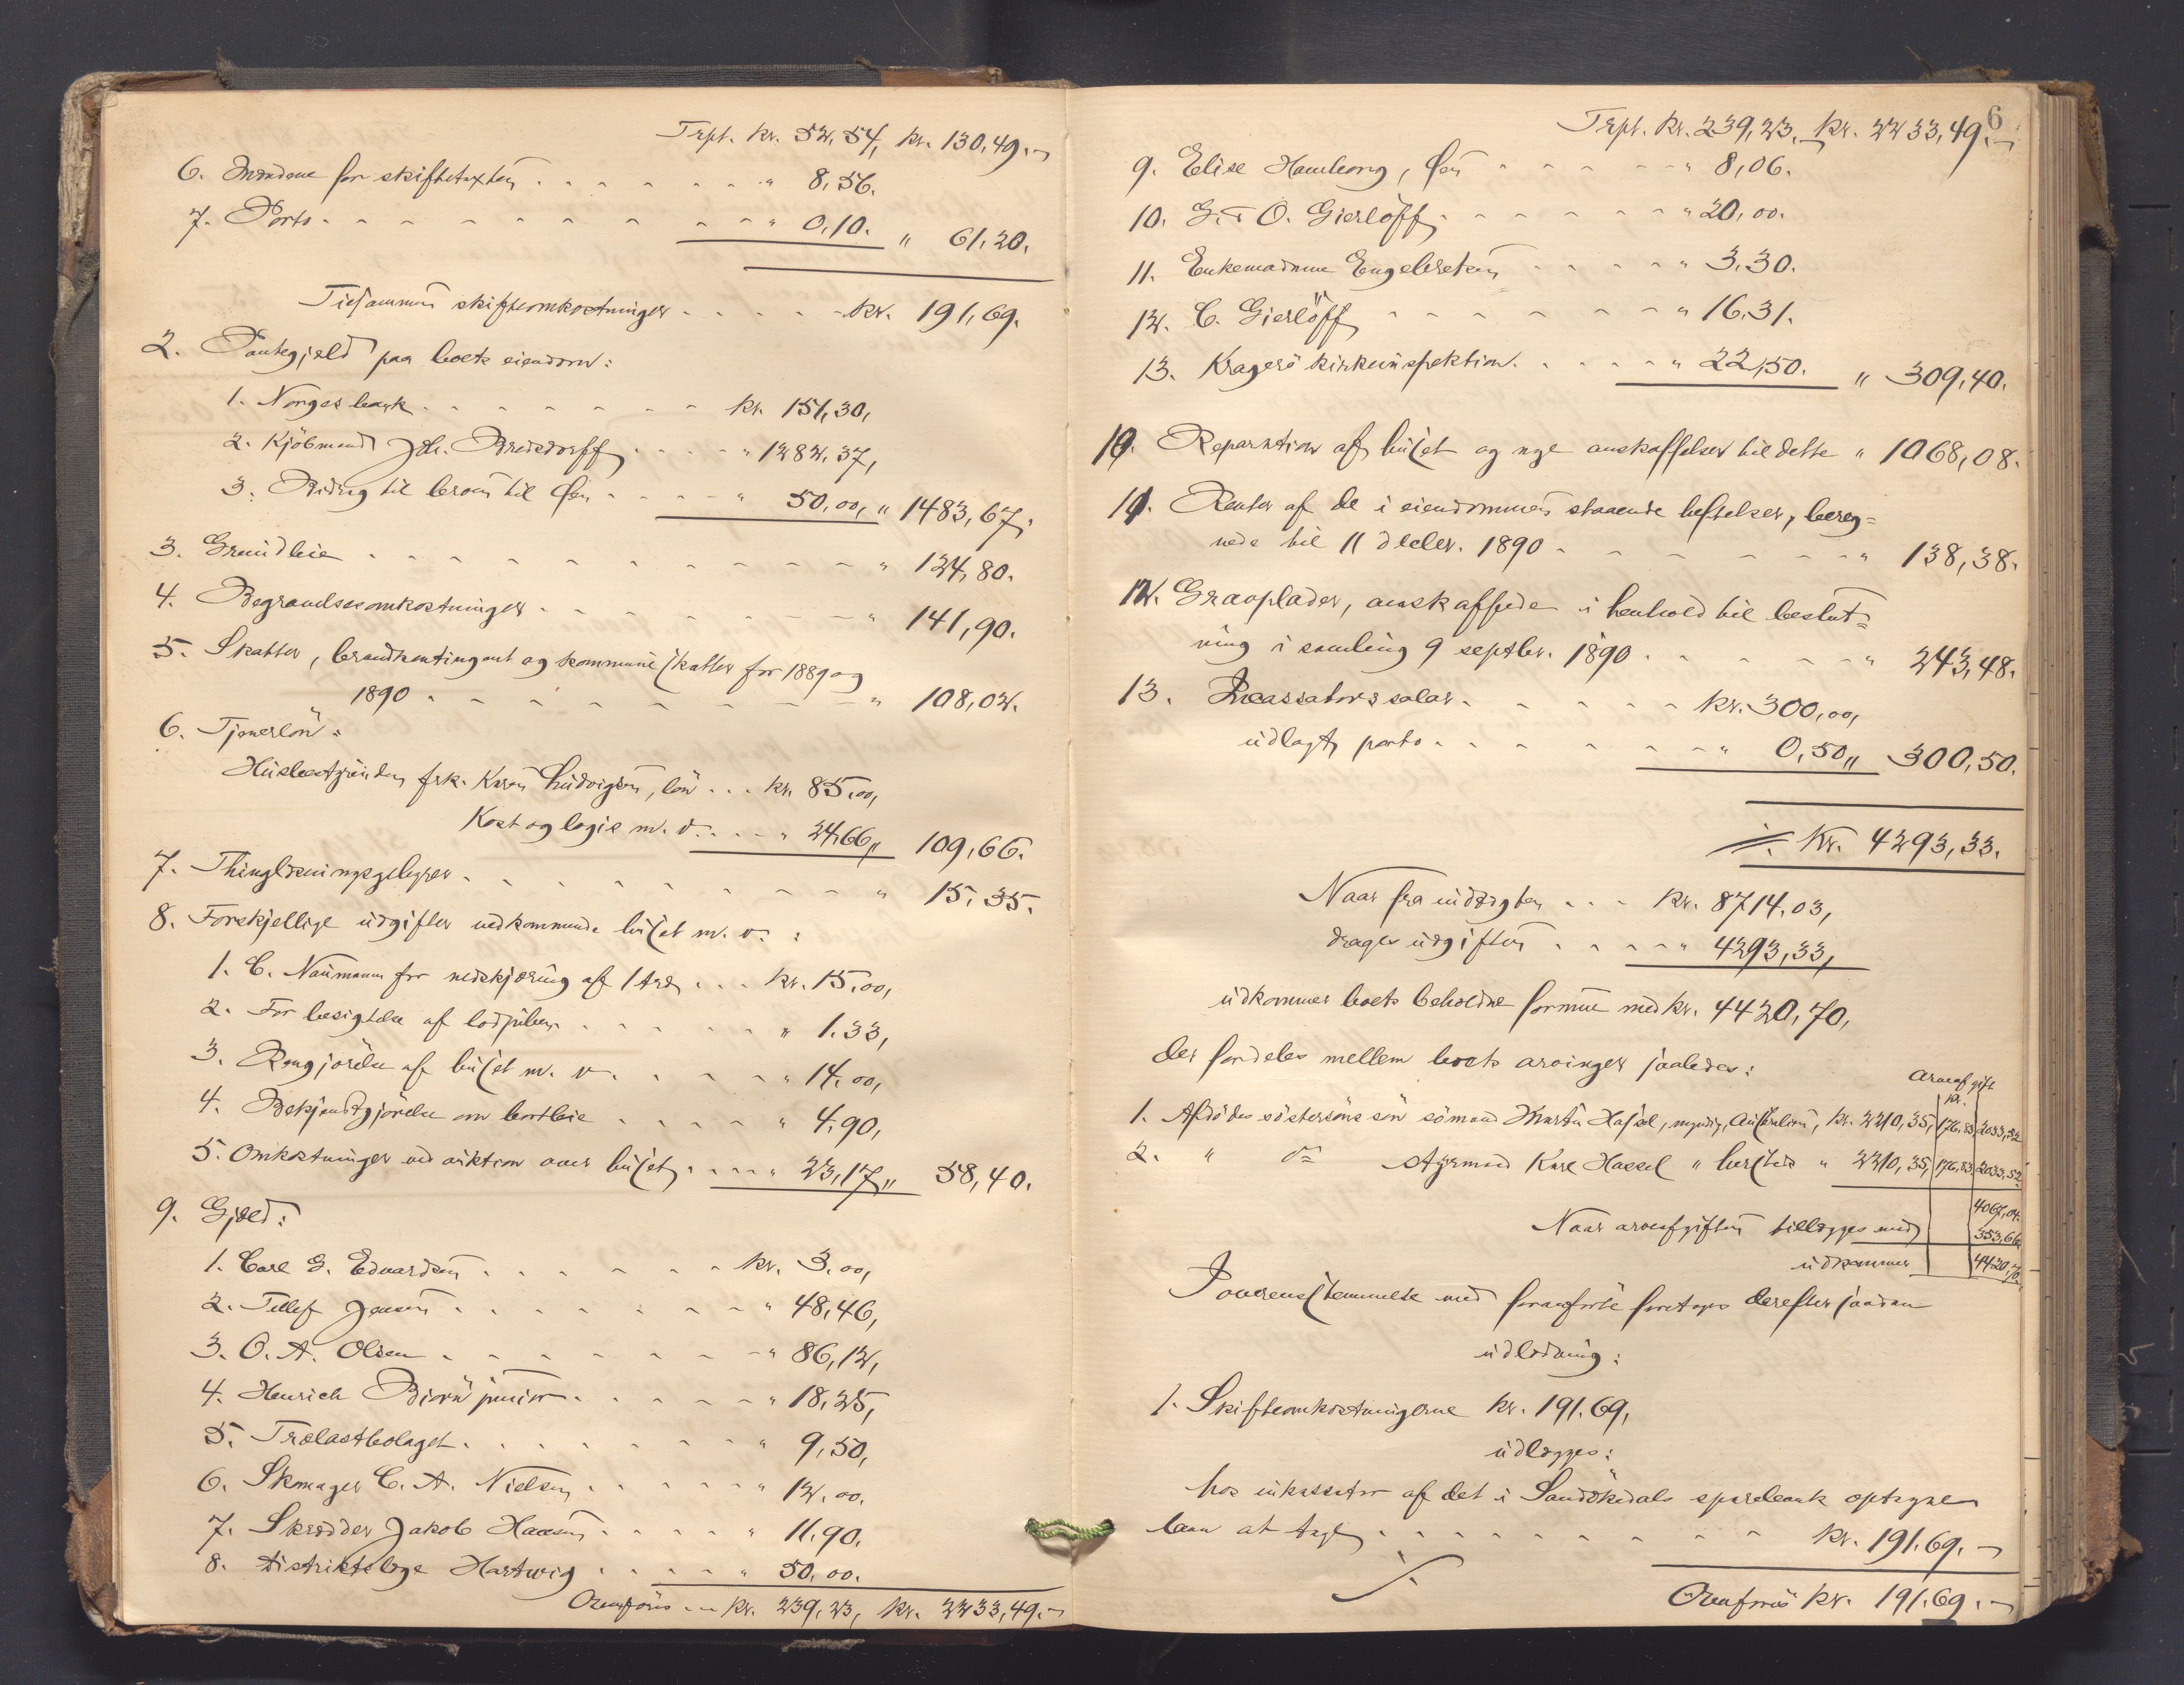 Trpt. kr. 52,54, kr. 130,49.
6. Mændene for skiftetaxten " 8,56.
7. Porto " 0,10. " 61,20.
Tilsammen skifteomkostninger kr. 191,69.
2. Pantegjæld paa boets eiendom:
1. Norges bank kr. 151,30,
2. Kjöbmand Joh. Bredsdorff " 1282,37,
3. Bidrag til broen til Øen " 50,00, " 1483,67,
3. Grundleie " 124,80.
4. Begravelsesomkostninger " 141,90.
5. Skatter, brandkontingent og kommuneskatter for 1889 og
1890 " 108,02.
6. Tjenerlön:
Husbestyrinden frk. Karen Ludvigsen, lön kr. 85,00,
Kost og logis m. v. " 24,66 " 109,66.
7. Thinglæsningsgebyrer " 15,35.
8. Forskjellige udgifter vedkommende huset m. v.:
1. C. Naumann for nedskjæring af 1 træ kr. 15,00,
2. For besigtelse af lodpiben " 1.33,
3. Rengjörelse af huset m. v. " 14,00,
4. Bekjendtgjörelse om bortleie " 4,90,
5. Omkostninger ved auktion over huset " 23,17 " 58,40.
9. Gjæld:
1. Carl G. Edvardsen kr. 3,00,
2. Tellef Jensen " 48,46,
3. O. A. Olsen " 86,12,
4. Henrich Biørn junior " 18,25,
5. Trælastbolaget " 9,50,
6. Skomager C. A. Nielsen " 12,00.
7. Skrædder Jakob Hansen " 11,90.
8. Distriktslæge Hartwig " 50,00.
Overföres kr. 239,23, kr. 2233,49.
6
Trpt. kr. 239,23, kr. 2233,49.
9. Elise Hamborg, Øen " 8,06.
10. G. & O. Gierlöff " 20,00.
11. Enkemadame Engebretsen " 3,30.
12. C. Gierlöff " 16,31.
13. Kragerö kirkeinspektion " 22,50. " 309,40.
10. Reparation af huset og nye anskaffelser til dette " 1068,08.
11. Renter af de i eiendommen staaende heftelser, bereg=
nede til 11 decbr. 1890 " 138,38.
12. Gravplader, anskaffede i henhold til beslut=
ning i samling 9 septbr. 1890 " 243,48.
13. Incassators salær kr. 300,00,
udlagt porto " 0,50 " 300,50.
Kr. 4293,33.
Naar fra indtægten kr. 8714,03,
drages udgiften " 4293,33,
udkommer boets beholdne formue med kr. 4420,70,
der fordeles mellem boets arvinger saaledes:
Arveafgift
kr.
1. Afdödes söstersöns sön sömand Martin Hassel, myndig, Australien, kr. 2210,35, 176,83 2033,52
2. " do styrmand Karl Hassel " hersteds " 2210,35, 176,83 2033,52
4067,04.
Naar arveafgiften tillægges med 353,66
udkommer 4420,70.
I overensstemmelse med foranförte foretages derefter saadan
udlodning:
1. Skifteomkostningerne kr. 191,69,
udlægges:
hos inkassator af det i Sandökedals sparebank optagne
laan at tage kr. 191,69.
Overföres kr. 191,69.